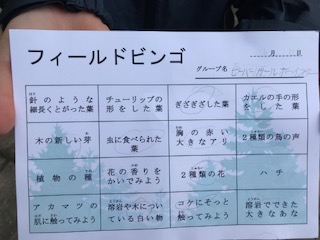 フィールドビンゴ
月　日
グループ名
針のような
細長くとがった葉
チューリップの
形をした葉
ぎざぎざした
葉
カエルの手の形
をした葉
木の新しい芽
虫に食べられた
葉
胸の赤い
大きなアリ
2種類の鳥の声
植物の種
花の香りを
かいでみよう
2種類の花
ハチ
アカマツの
肌に触ってみよう
溶岩や木につい
ている白い物
コケにそっと
触ってみよう
溶岩でできた
大きなあな